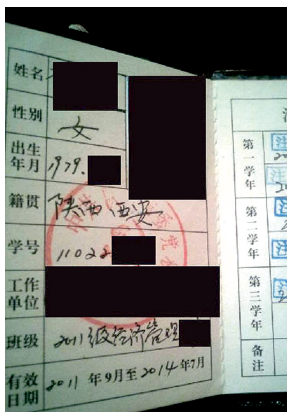 姓名
性别 女
出生年月 1979.
籍贯 陕西 西安
学号 11022
工作单位
班级 2011级经济管理
有效日期 2011 年9月至2014年7月
第一学年
注
第二学年
注
第三学年
注
备注